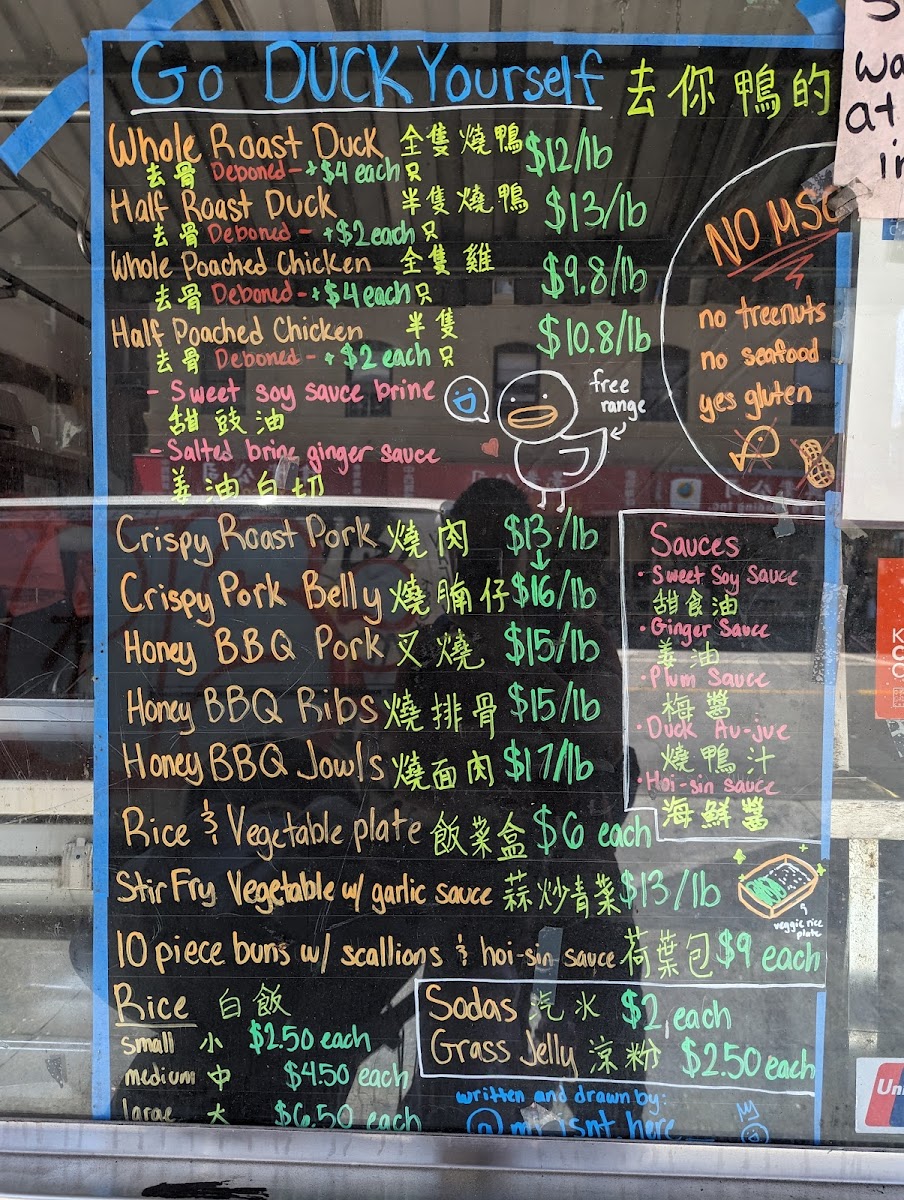 Go DUCK Yourself 去你鴨的
Whole Roast Duck 全隻燒鴨 $12/lb
去骨 Deboned - +$4 each 只
Half Roast Duck 半隻燒鴨 $13/lb
去骨 Deboned - +$2 each 只
Whole Poached Chicken 全隻雞 $9.8/lb
去骨 Deboned - +$4 each 只
Half Poached Chicken 半隻 $10.8/lb
去骨 Deboned - +$2 each 只
- Sweet soy sauce brine
甜豉油
- Salted brine ginger sauce
姜油白切
free
range
NO MSG
no treenuts
no seafood
yes gluten
Crispy Roast Pork 燒肉 $13/lb
Crispy Pork Belly 燒腩仔 $16/lb
Honey BBQ Pork 叉燒 $15/lb
Honey BBQ Ribs 燒排骨 $15/lb
Honey BBQ Jowls 燒面肉 $17/lb
Rice & Vegetable plate 飯菜盒 $6 each
Stir Fry Vegetable w/ garlic sauce 蒜炒青菜 $13/lb
10 piece buns w/ scallions & hoi-sin sauce 荷葉包 $9 each
Sauces
• Sweet Soy Sauce
甜食油
• Ginger Sauce
姜油
• Plum Sauce
梅醬
• Duck Au-jue
燒鴨汁
• Hoi-sin sauce
海鮮醬
veggie rice
plate
Rice 白飯
small 小 $2.50 each
medium 中 $4.50 each
large 大 $6.50 each
Sodas 汽水 $2 each
Grass Jelly 涼粉 $2.50 each
written and drawn by:
isnt here
wa
at
in
Un